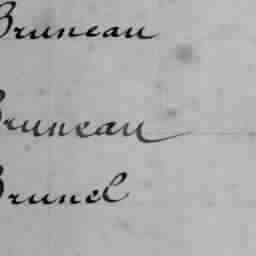 Bruneau
Bruneau
Brunel